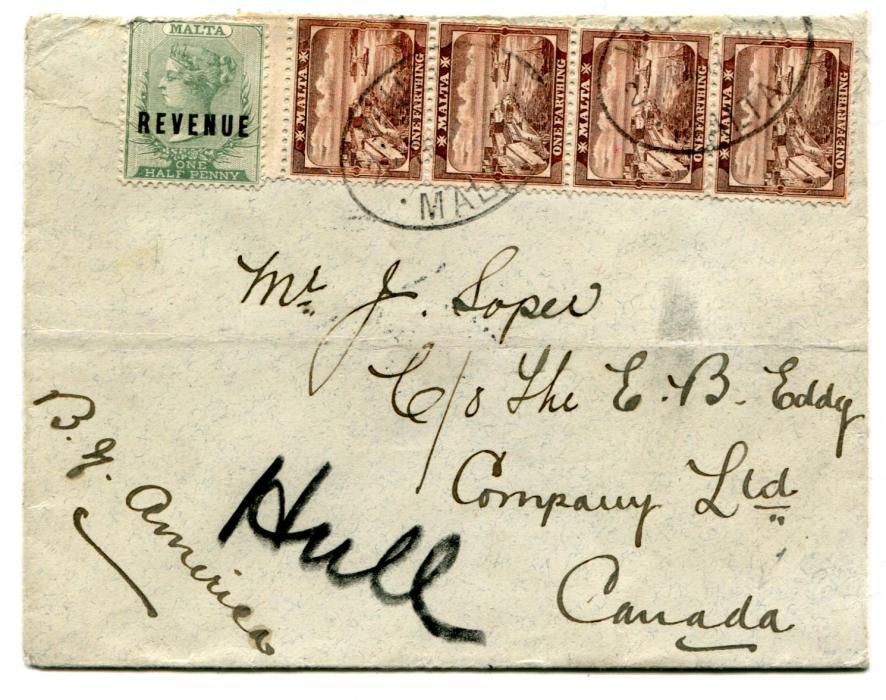 MALTA
REVENUE
ONE
HALF PENNY
MALTA ONE FARTHING
MALTA ONE FARTHING
MALTA ONE FARTHING
MALTA ONE FARTHING
MALTA
MALTA
Mr. J. Soper
C/o The E. B. Eddy
Company Ltd
Canada
Hull
B. N. America